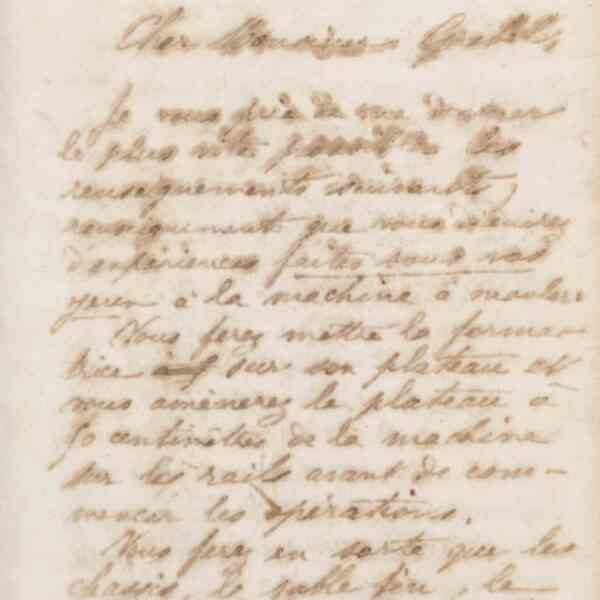 Cher Monsieur
Je vous prie de me donner
le plus vite possible les
renseignements suivants,
renseignement que vous
d'expériences faites sous vos
yeux à la machine à mouler.
Vous ferez mettre la forme
trice sur son plateau et
vous amènerez le plateau à
50 centimètres de la machine
sur les rails avant de com-
mencer les opérations.
Vous ferez en sorte que les
chassis, le sable fin, le